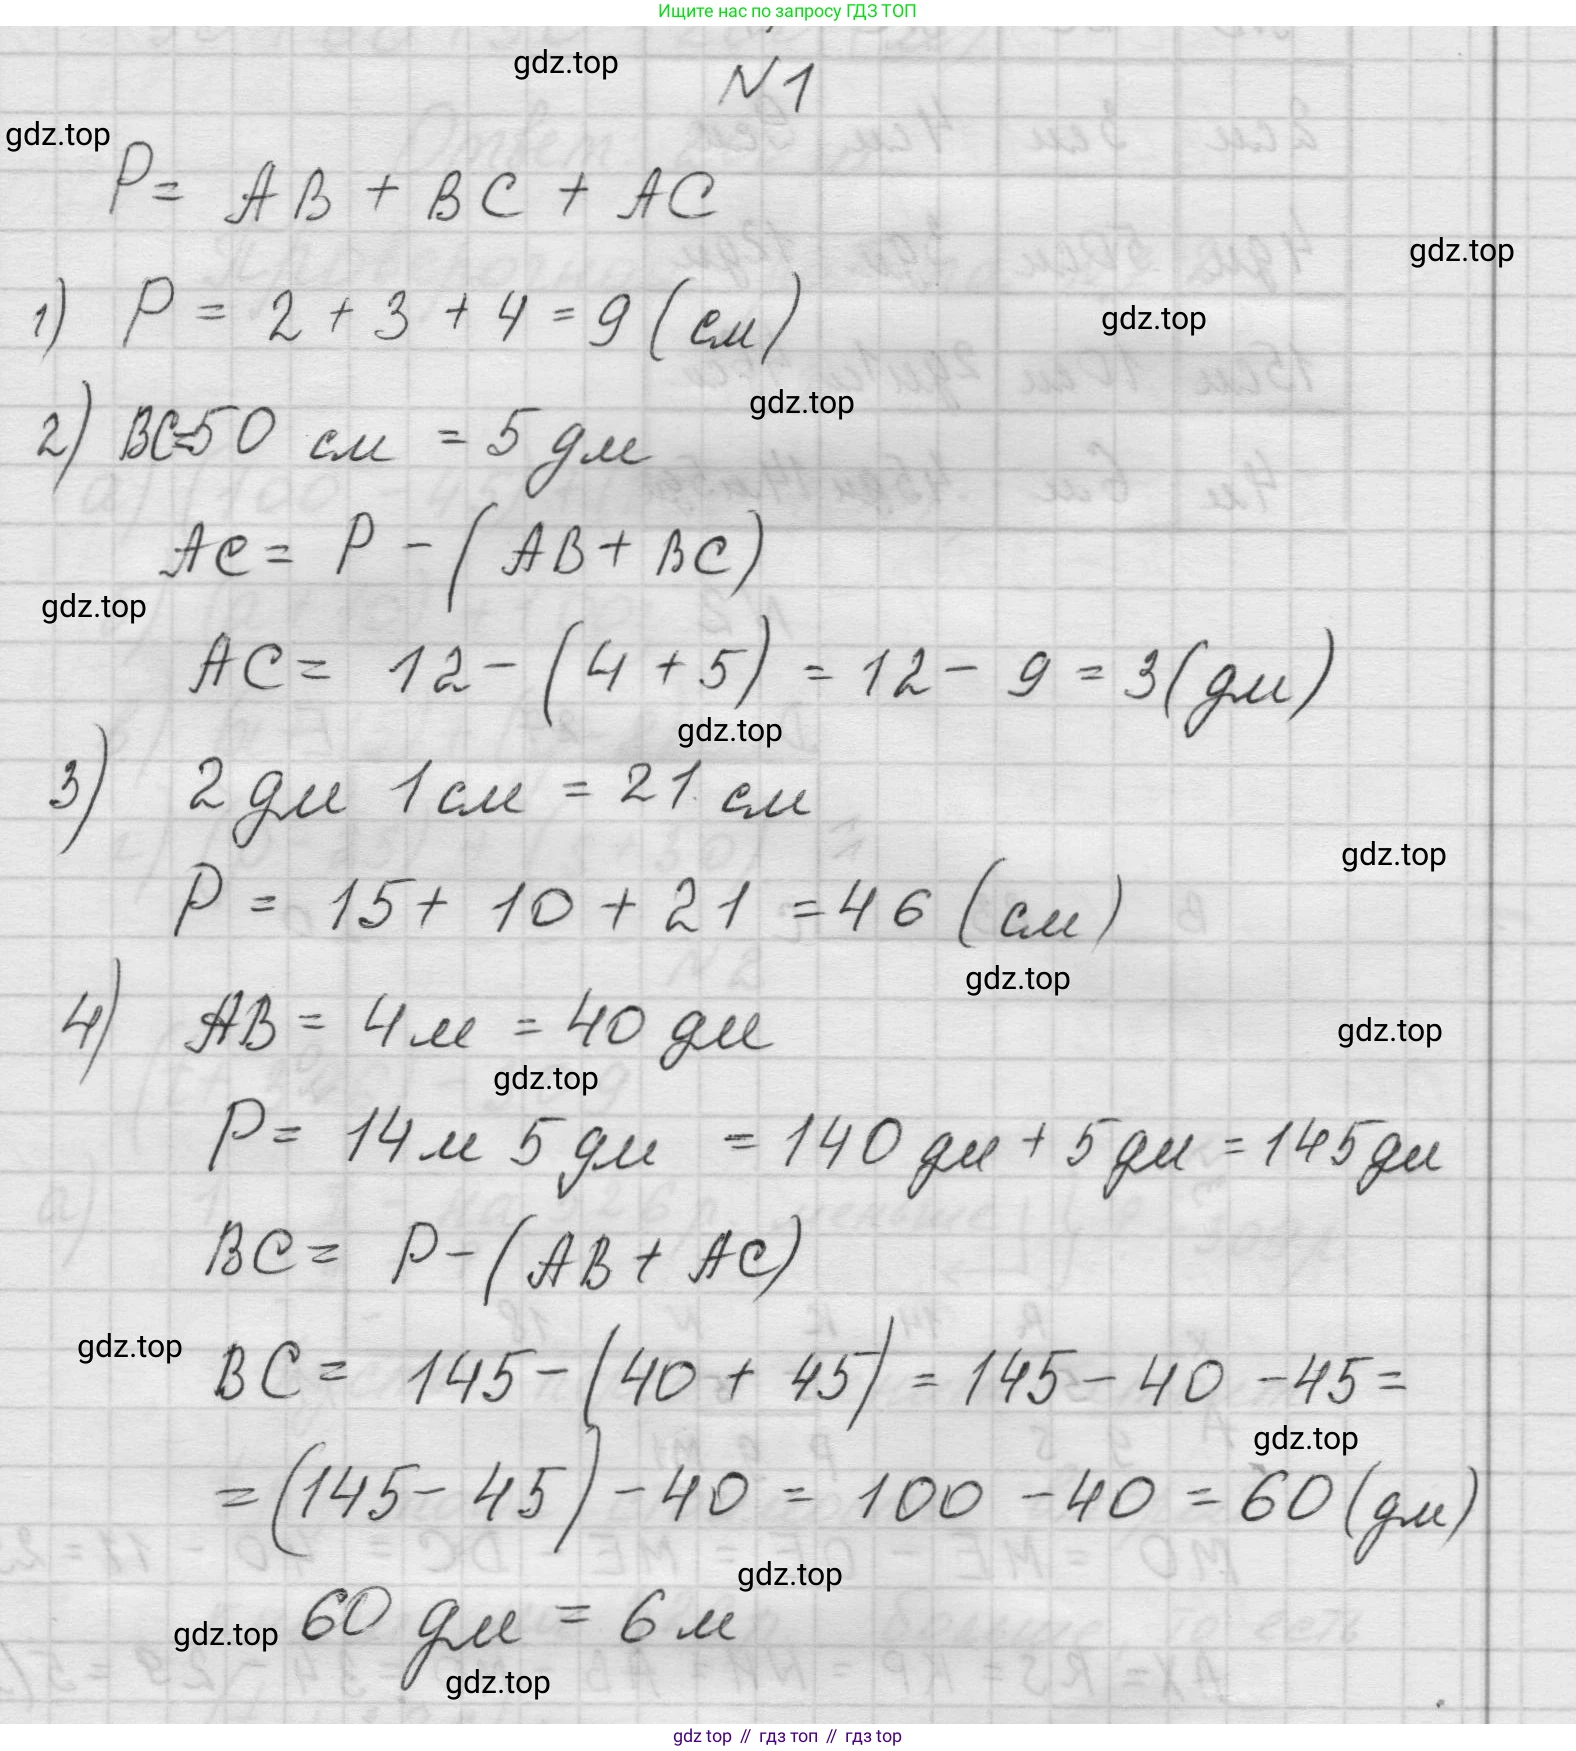 Ищите нас по запросу ГДЗ ТОП
gdz.top
N 1
gdz.top
P = AB + BC + AC
gdz.top
1) P = 2 + 3 + 4 = 9 (см)
gdz.top
gdz.top
2) BC=50 см = 5 дм
AC = P - (AB + BC)
gdz.top
AC = 12 - (4 + 5) = 12 - 9 = 3 (дм)
gdz.top
3) 2 дм 1 см = 21 см
gdz.top
P = 15 + 10 + 21 = 46 (см)
gdz.top
4) AB = 4 м = 40 дм
gdz.top
gdz.top
P = 14 м 5 дм = 140 дм + 5 дм = 145 дм
BC = P - (AB + AC)
gdz.top
BC = 145 - (40 + 45) = 145 - 40 - 45 =
gdz.top
= (145 - 45) - 40 = 100 - 40 = 60 (дм)
gdz.top
60 дм = 6 м
gdz.top
gdz.top
gdz top // гдз топ // гдз top